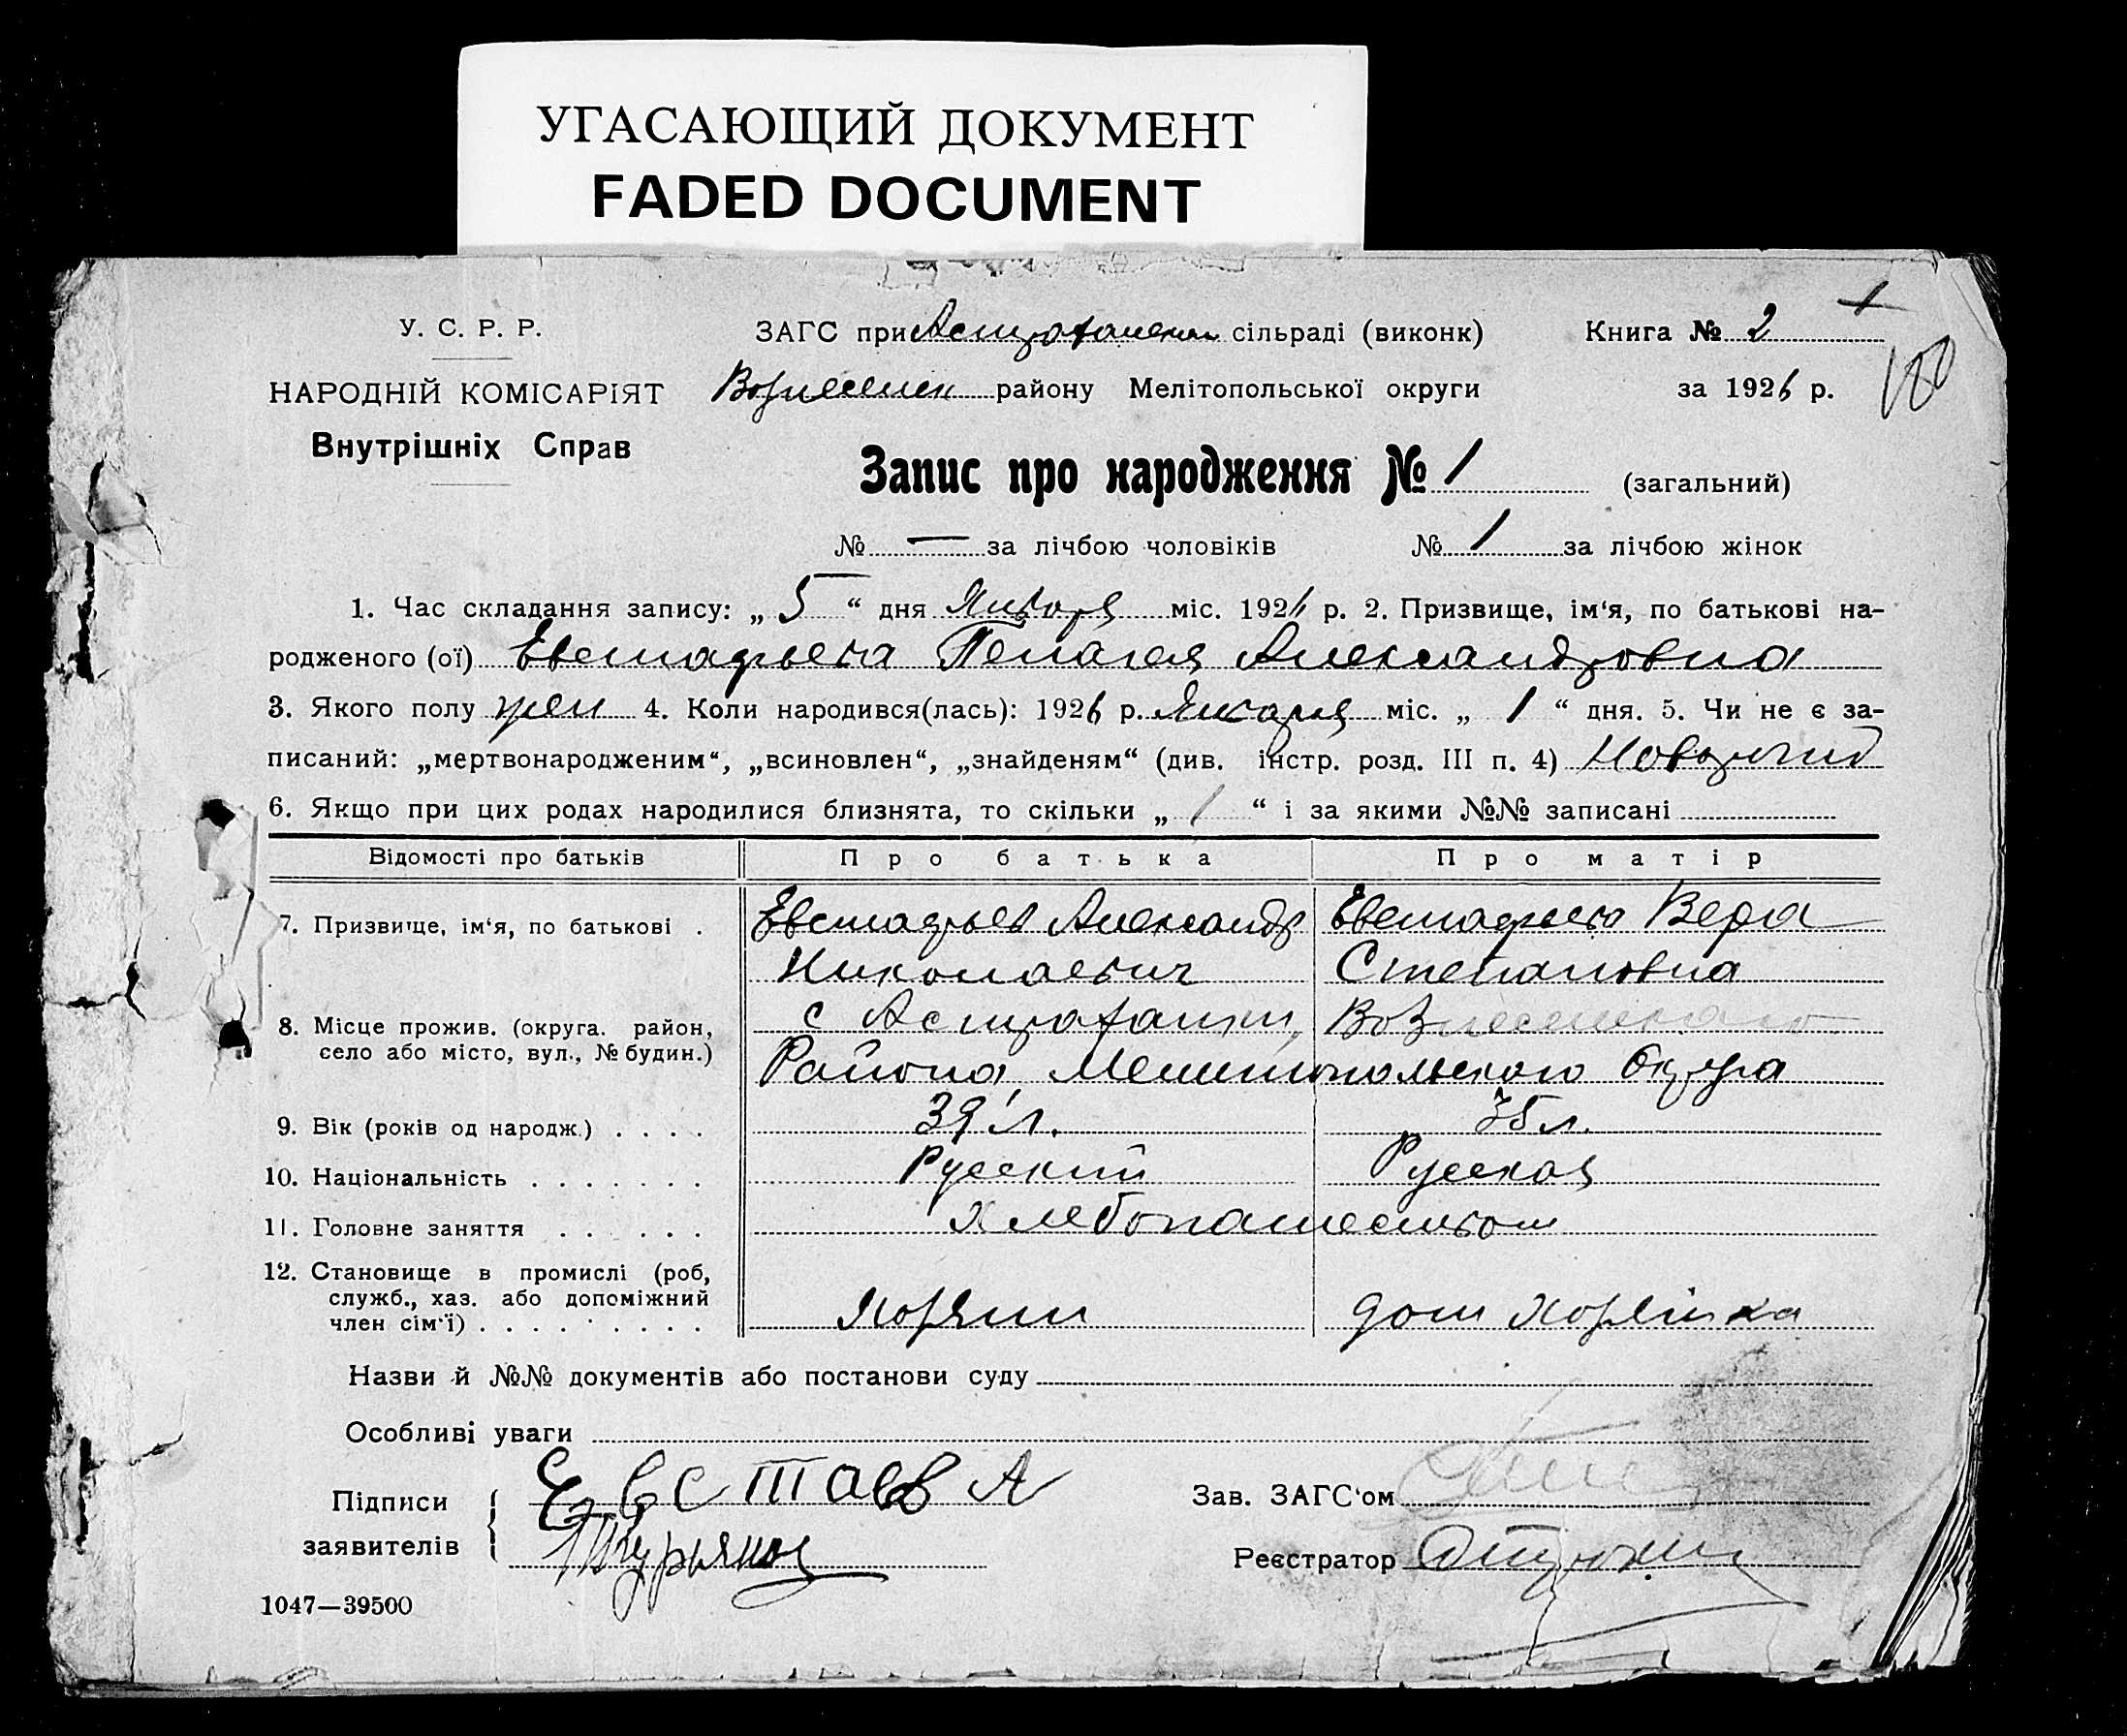 УГАСАЮЩИЙ ДОКУМЕНТ
FADED DOCUMENT
У. С. Р. Р.
НАРОДНІЙ КОМІСАРІЯТ
Внутрішніх Справ
ЗАГС при Астрахански сільраді (виконк)
Вознесенск району Мелітопольської округи
Книга № 2
за 1926 р.
180
Запис про народження № 1 (загальний)
№ — за лічбою чоловіків № 1 за лічбою жінок
1. Час складання запису: „ 5 “ дня Января міс. 1926 р. 2. Призвище, ім‘я, по батькові на-
родженого (ої) Евстафьева Пелагея Александровна
3. Якого полу жен 4. Коли народився(лась): 1926 р. Января міс. „ 1 “ дня. 5. Чи не є за-
писаний: „мертвонародженим“, „всиновлен“, „знайденям“ (див. інстр. розд. III п. 4)
6. Якщо при цих родах народилися близнята, то скільки „ / “ і за якими №№ записані
Відомості про батьків Про батька Про матір
7. Призвище, ім‘я, по батькові . Евстафьев Александр Евстафьева Вера
Николаевич Степановна
8. Місце прожив. (округа. район, с Астраханки, Вознесенского
село або місто, вул., № будин.) Района, Мелитопольского Округа
9. Вік (років од народж.) . . . . 39 л. 35 л.
10. Національність . . . . . . . Русский Русская
11. Головне заняття . . . . . . Хлебопашеством
12. Становище в промислі (роб,
служб., хаз. або допоміжний
член сім‘ї) . . . . . . . . . Хозяин дом хозяйка
Назви й №№ документів або постанови суду
Особливі уваги
Підписи
заявителів
Евстаев А
Зав. ЗАГС‘ом
Реєстратор
1047—39500